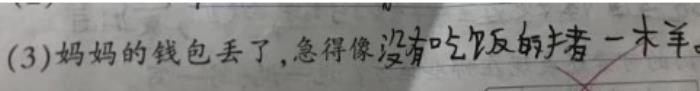 (3)妈妈的钱包丢了,急得像没有吃饭的猪一样。